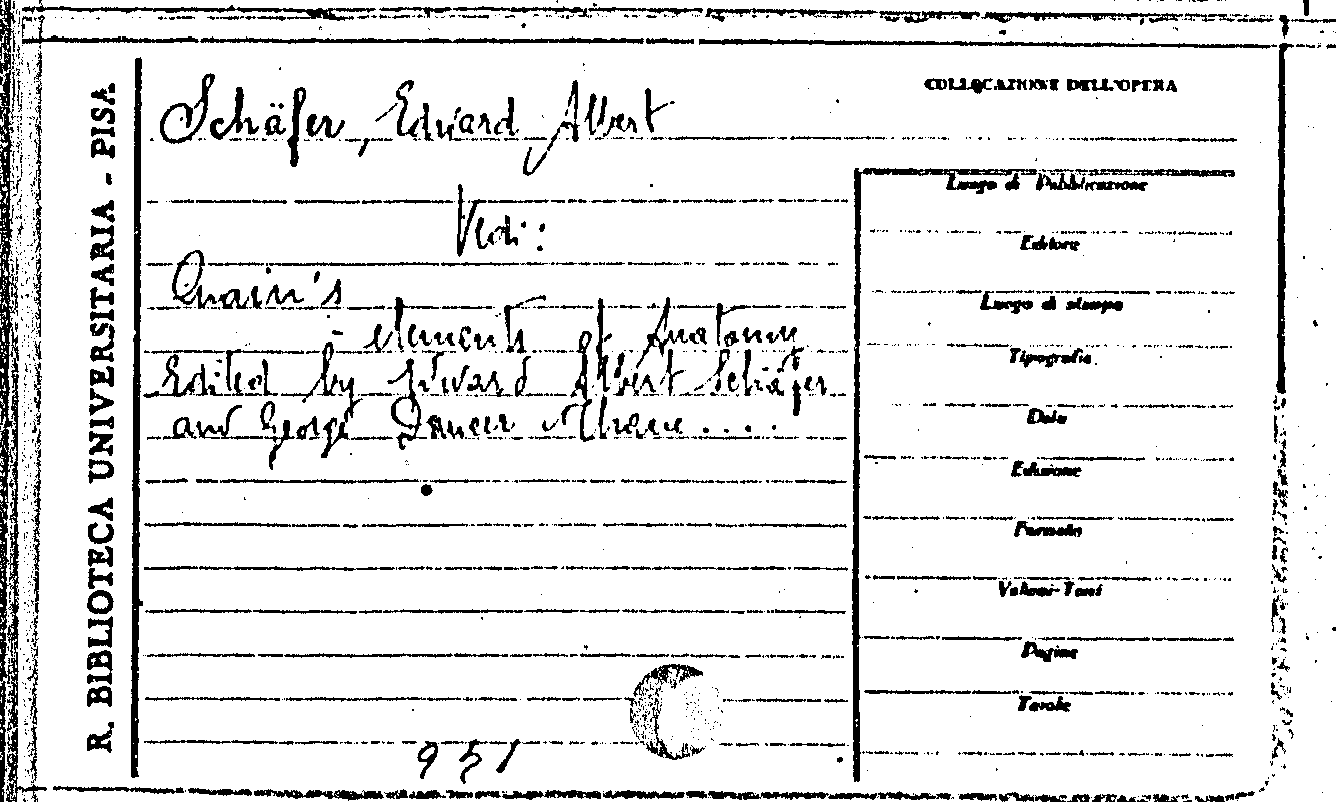 R. BIBLIOTECA UNIVERSITARIA - PISA
COLLOCAZIONE DELL'OPERA
Schäfer, Edward Albert
Vedi:
Quain's
elements of Anatomy
Edited by Edward Albert Schäfer
and George Dancer Thane....
951
Luogo di Pubblicazione
Editore
Luogo di stampa
Tipografia
Data
Edizione
Formato
Volumi-Tomi
Pagine
Tavole